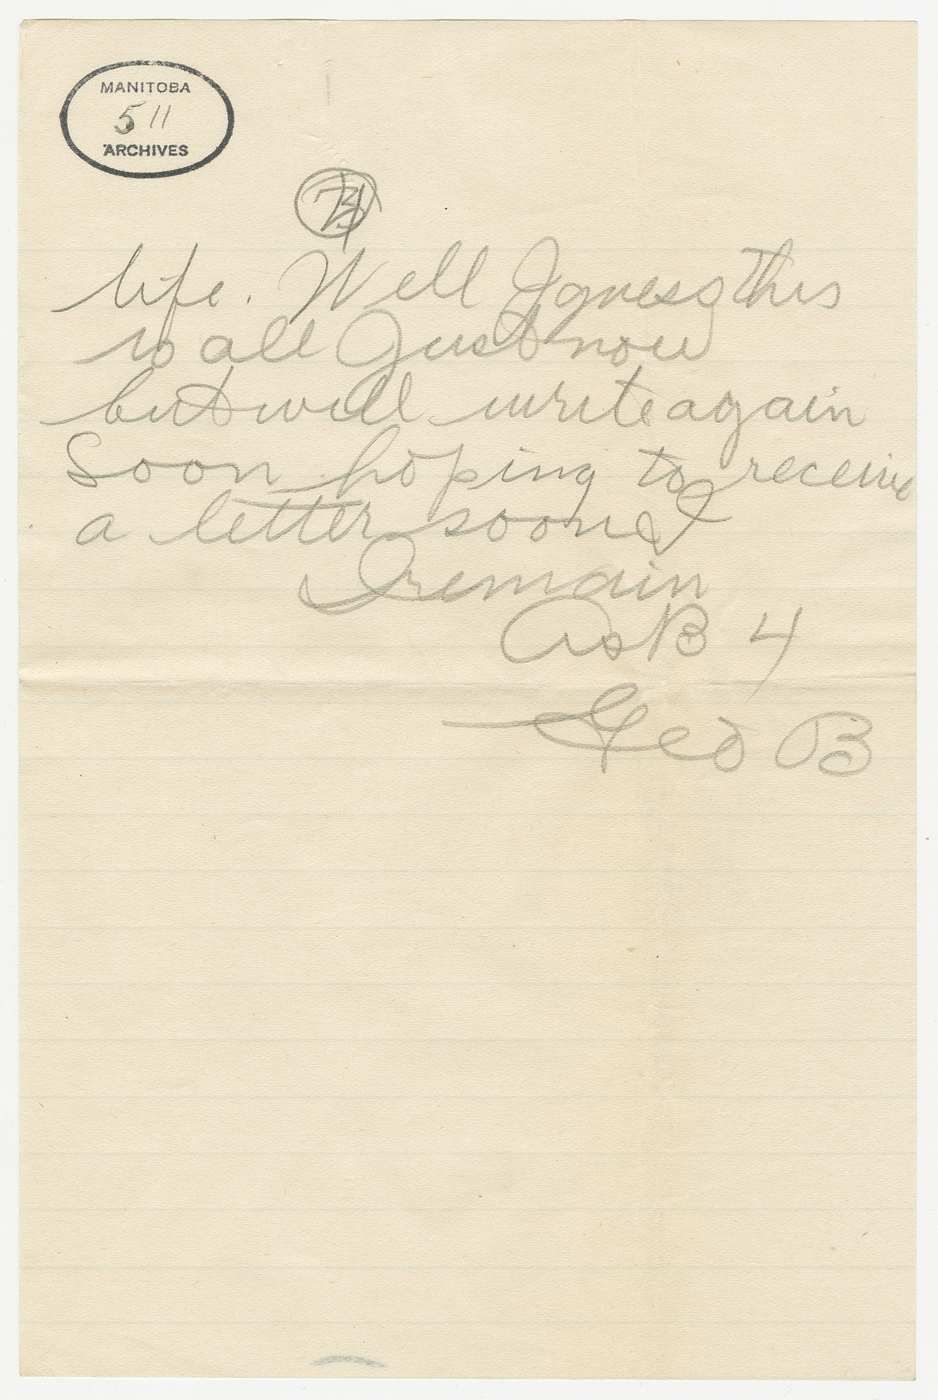 MANITOBA
511
ARCHIVES
life. Well Agness this
is all Just now
but will write again
Soon hoping to receive
a letter soon I
remain
As B 4
Geo B